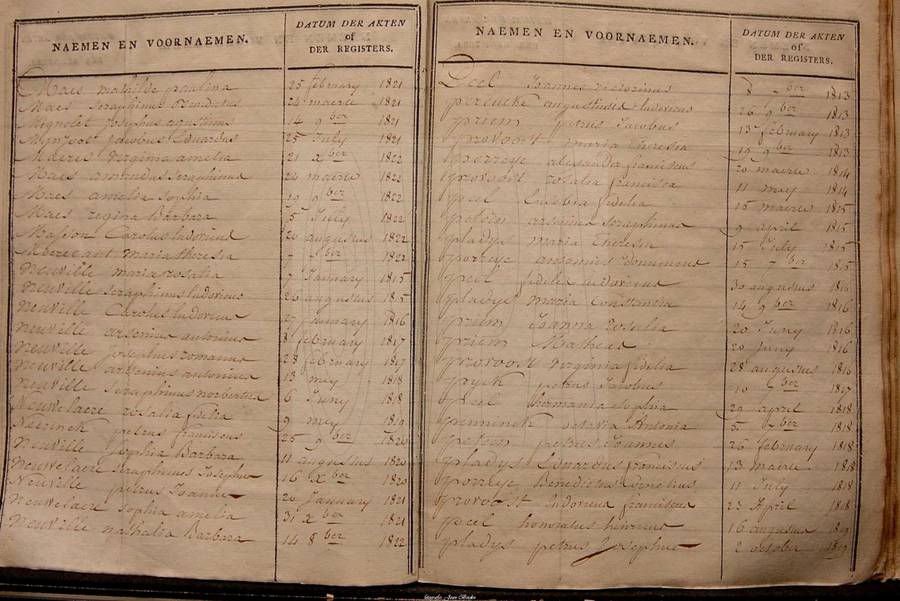 NAEMEN EN VOORNAEMEN.
DATUM DER AKTEN
of
DER REGISTERS.
Maes mathilde paulina 25 february 1821
Maes seraphinus Benedictus 26 maerte 1821
Mignolet Josephus 14 9ber 1821
Mijnfoort Jacobus Eduardus 25 July 1821
virginia amelia 21 xber 1822
Maes amandus seraphinus 24 maerte 1822
Maes amelia sophia 19 9ber 1822
Maes regina Barbara 5 July 1822
Masson Carolus ludovicus 20 augustus 1822
maria theresia 1822
neuville maria rosalia 7 January 1815
neuville seraphinus ludovicus 26 augustus 1815
neuville Carolus ludovicus January 1816
neuville arsenius antonius 8 february 1817
neuville Josephus romanus 28 february 1817
neuville arsenius antonius 13 mey 1818
neuville seraphinus norbertus 6 Juny 1818
Neuvelaere rosalia julia 9 mey 1819
petrus franciscus 25 9ber 1820
neuville sophia Barbara 11 augustus 1820
neuvelaere seraphinus Josephus 16 xber 1820
Neuville petrus Joannes 20 January 1821
neuvelaere sophia amelia 31 xber 1821
neuville nathalia Barbara 14 8ber 1822
NAEMEN EN VOORNAEMEN.
DATUM DER AKTEN
of
DER REGISTERS.
Joannes victorinus ber 1813
augustinus ludovicus 26 9ber 1813
priem petrus Jacobus 13 february 1813
provoost maria theresia 19 9ber 1813
porreye alexander franciscus 20 maerte 1814
provoost rosalia francisca 11 mey 1814
peel Eusebia fidelia 15 maerte 1815
arsenius seraphinus 9 april 1815
pladys maria theresia 15 July 1815
porreye antonius 15 ber 1815
peel fidelis ludovicus 30 augustus 1816
pladys maria Constantia 14 9ber 1816
priem Joanna rosalia 20 Juny 1816
priem Matheus 20 Juny 1816
provoost virginia fidelia 28 augustus 1816
petrus Jacobus 10 ber 1817
peel romania sophia 29 april 1818
octavia Antonia 5 ber 1818
petrus Joannes 26 february 1818
pladys Eduardus franciscus 13 maerte 1818
porreye Benedictus Cornelius 11 July 1818
provoost ludovicus franciscus 23 April 1818
peel honoratus henricus 16 augustus 1819
pladys petrus Josephus 2 october 1819